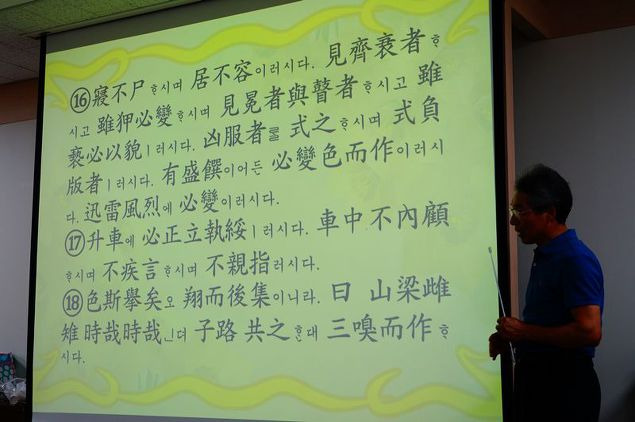 ⑯寢不尸ᄒᆞ시며 居不容이러시다. 見齊衰者ᄒᆞ
시고 雖狎必變ᄒᆞ시며 見冕者與瞽者ᄒᆞ시고 雖
褻必以貌ㅣ러시다. 凶服者 式之ᄒᆞ시며 式負
版者ㅣ러시다. 有盛饌이어든 必變色而作이러시
다. 迅雷風烈에 必變이러시다.
⑰升車에 必正立執綏ㅣ러시다. 車中 不內顧
ᄒᆞ시며 不疾言ᄒᆞ시며 不親指러시다.
⑱色斯擧矣오 翔而後集이니라. 曰 山梁雌
雉 時哉時哉ᅟᅵᆫ뎌 子路 共之ᄒᆞᆫ대 三嗅而作ᄒᆞ
시다.